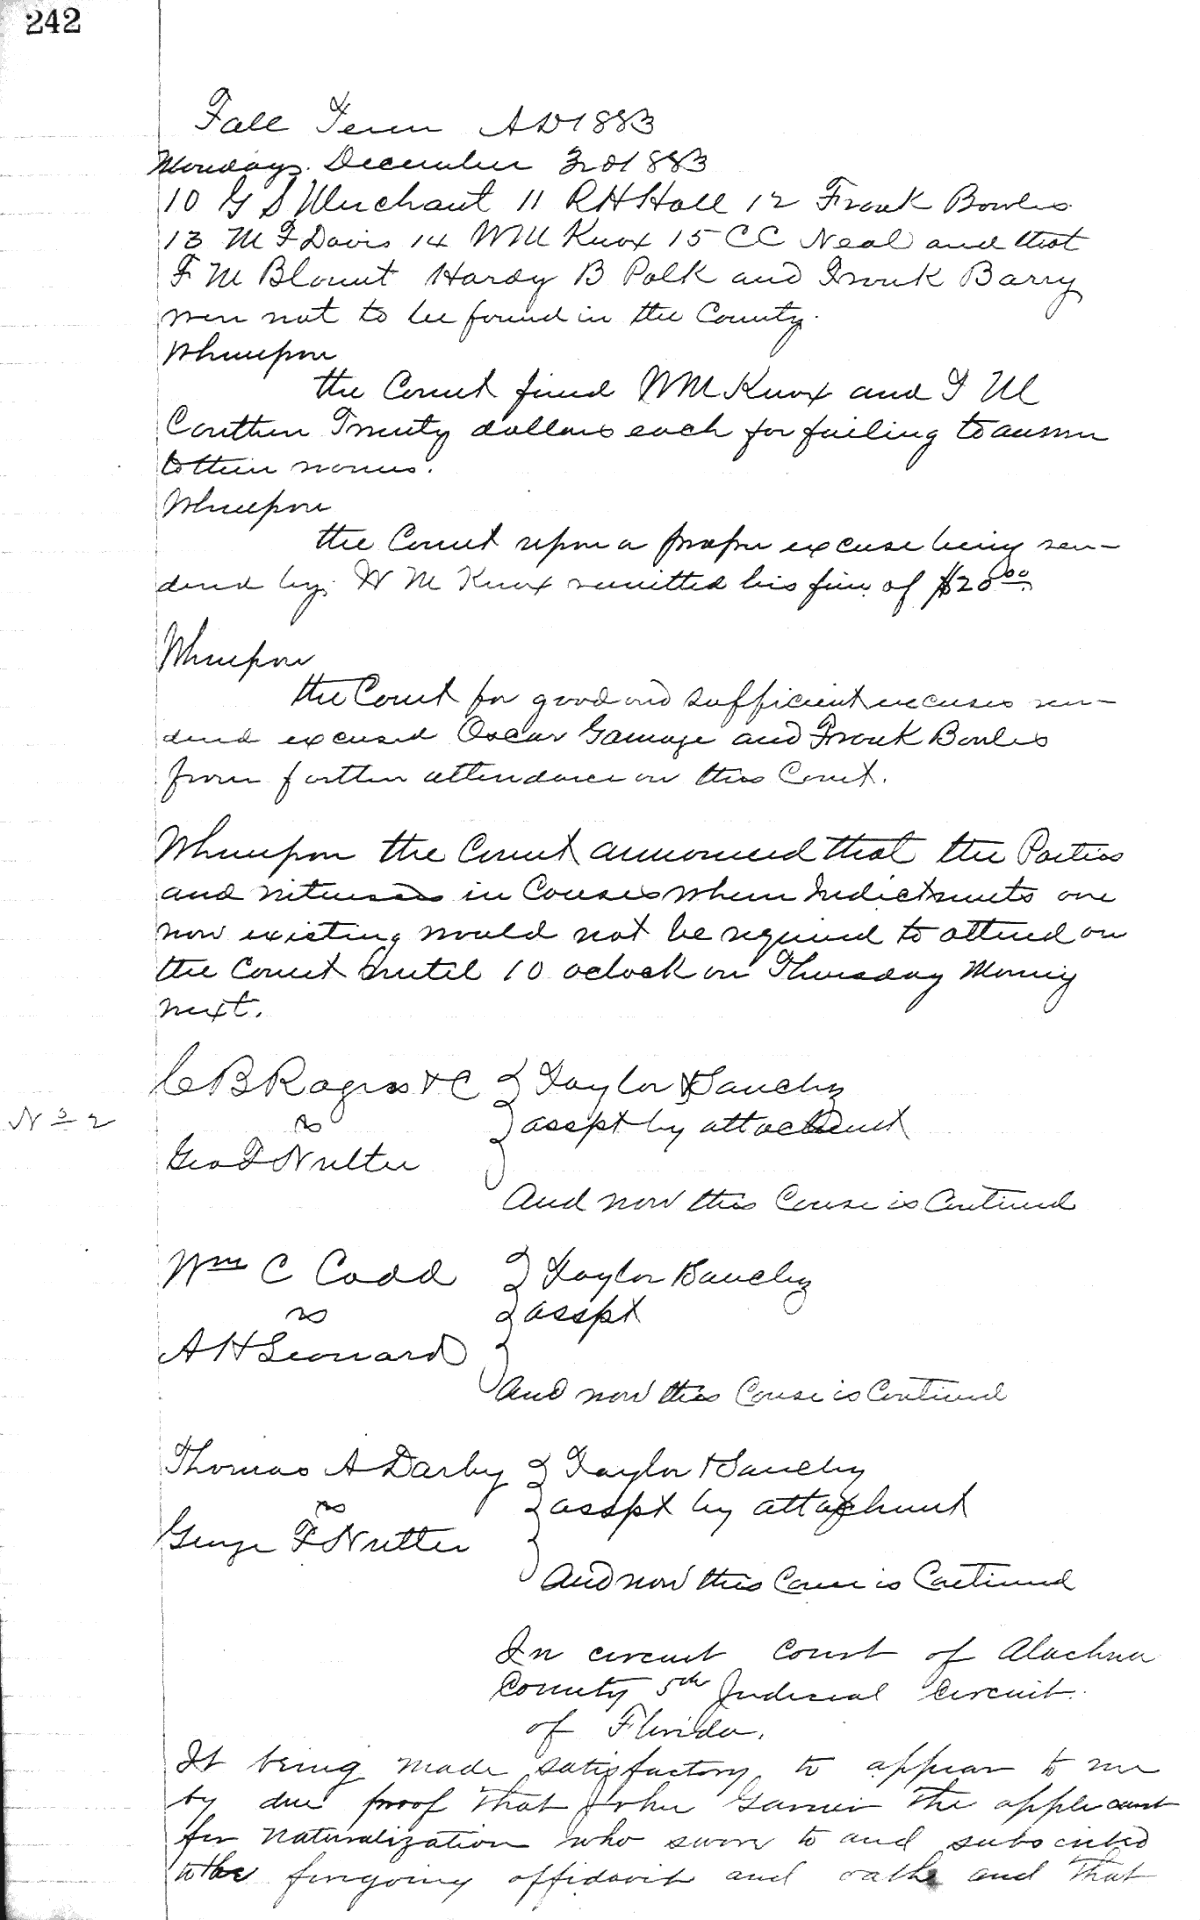 242
Fall Term AD 1883
Monday December 3rd 1883
10 G S Merchant 11 R H Hall 12 Frank Bowles
13 M F Davis 14 W M Knox 15 C C Neal and that
F M Blount Hardy B Polk and Frank Barry
were not to be found in the County.
Whereupon
the Court fined W M Knox and F M
Cauthen Twenty dollars each for failing to answer
to their names.
Whereupon
the Court upon a proper excuse being ren-
dered by W M Knox remitted his fine of $20.00
Whereupon
the Court for good and sufficient excuses ren-
dered excused Oscar Gamage and Frank Bowles
from further attendance on this Court.
Whereupon the Court announced that the Parties
and witnesses in Causes where Indictments are
now existing would not be required to attend on
the Court until 10 oclock on Thursday Morning
next.
C B Rogers & C } Taylor & Sanchez
No 2
vs } asspt by attachment
Geo F Nutter
And now this Cause is Continued
Wm C Codd } Taylor & Sanchez
vs } asspt
A H Leonard
And now this Cause is Continued
Thomas A Darby } Taylor & Sanchez
vs } asspt by attachment
George F Nutter
And now this Cause is Continued
In circuit court of Alachua
County 5th Judicial Circuit.
of Florida.
It being made satisfactory to appear to me
by due proof that John the applicant
for Naturalization who swore to and subscribed
to the foregoing affidavit and oath and that